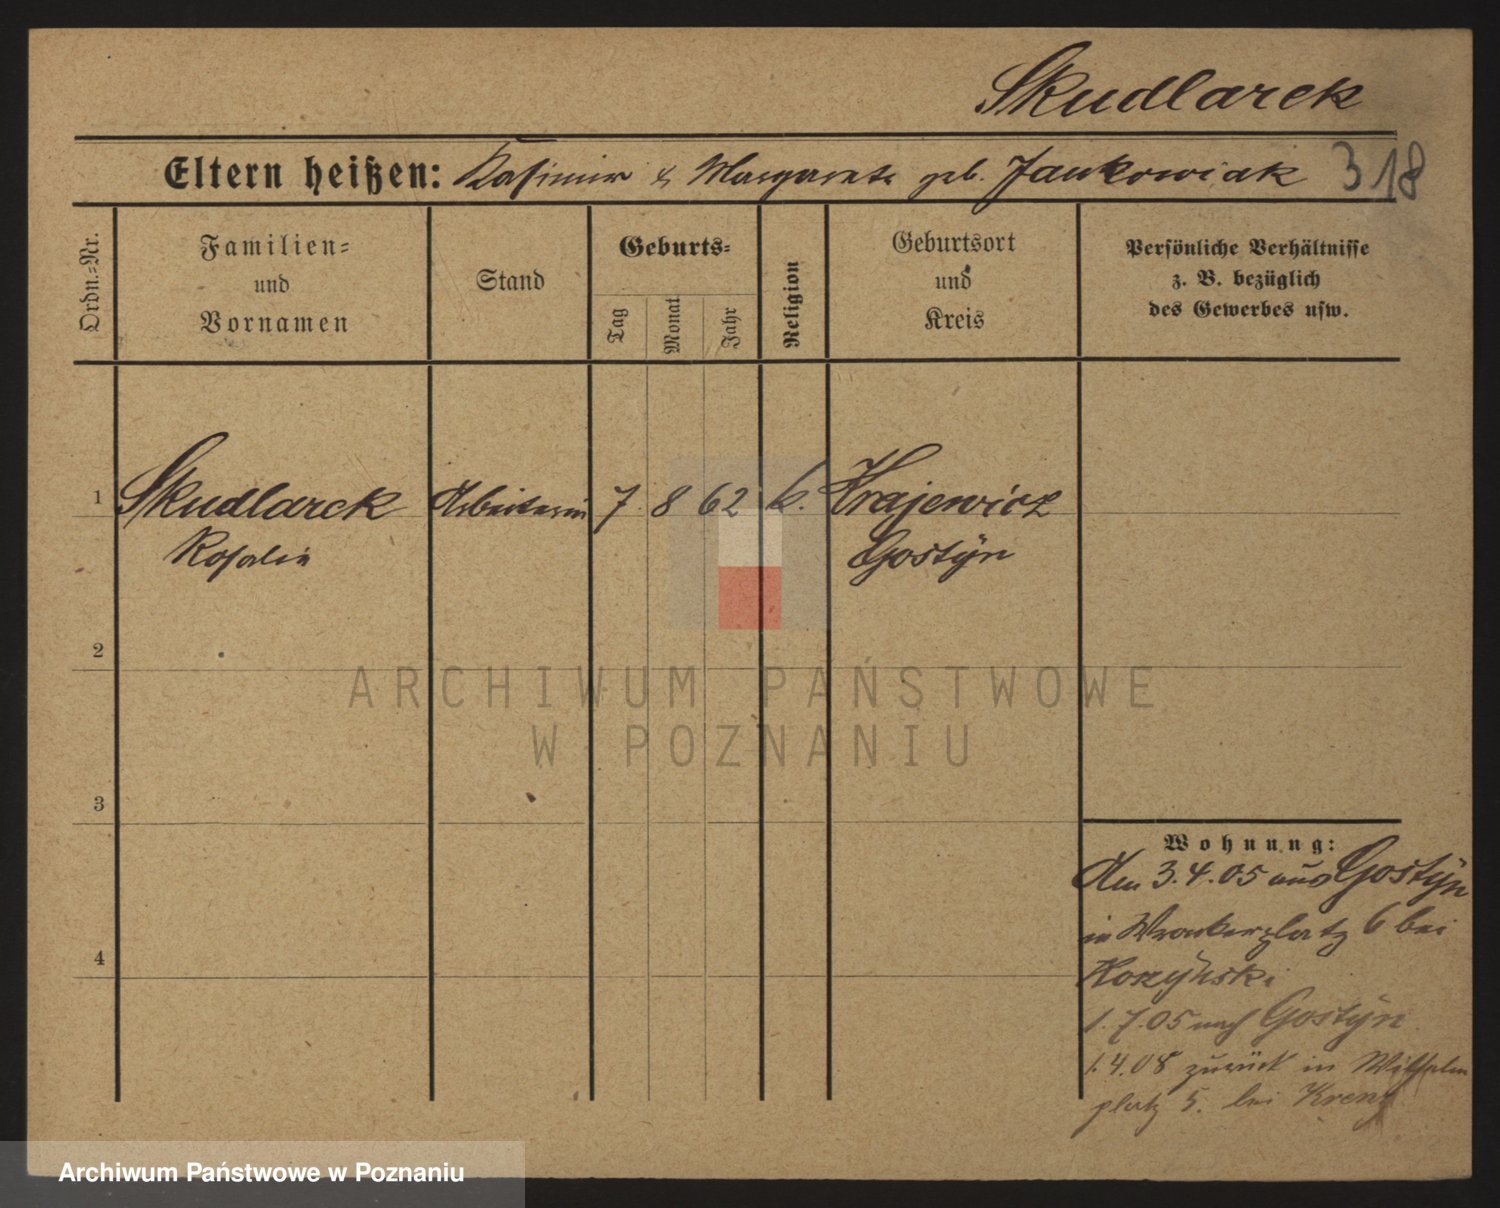 Skudlarek
Eltern heißen: Kasimir & Margarete geb. Jankowiak 318
Ordn.-Nr.
Familien-
und
Vornamen
Stand
Geburts-
Tag
Monat
Jahr
Religion
Geburtsort
und
Kreis
Persönliche Verhältnisse
z. B. bezüglich
des Gewerbes usw.
1 Skudlarek Arbeiterin 7. 8 62 k. Krajewicz
Rosalie Gostÿn
2
3
4
Wohnung:
Am 3.4.05 aus Gostÿn
in Wronkerplatz 6 bei
1.7.05 nach Gostÿn
1.4.08 zurück in Wilhelm
platz 5. bei Krenz
ARCHIWUM PAŃSTWOWE
W POZNANIU
Archiwum Państwowe w Poznaniu